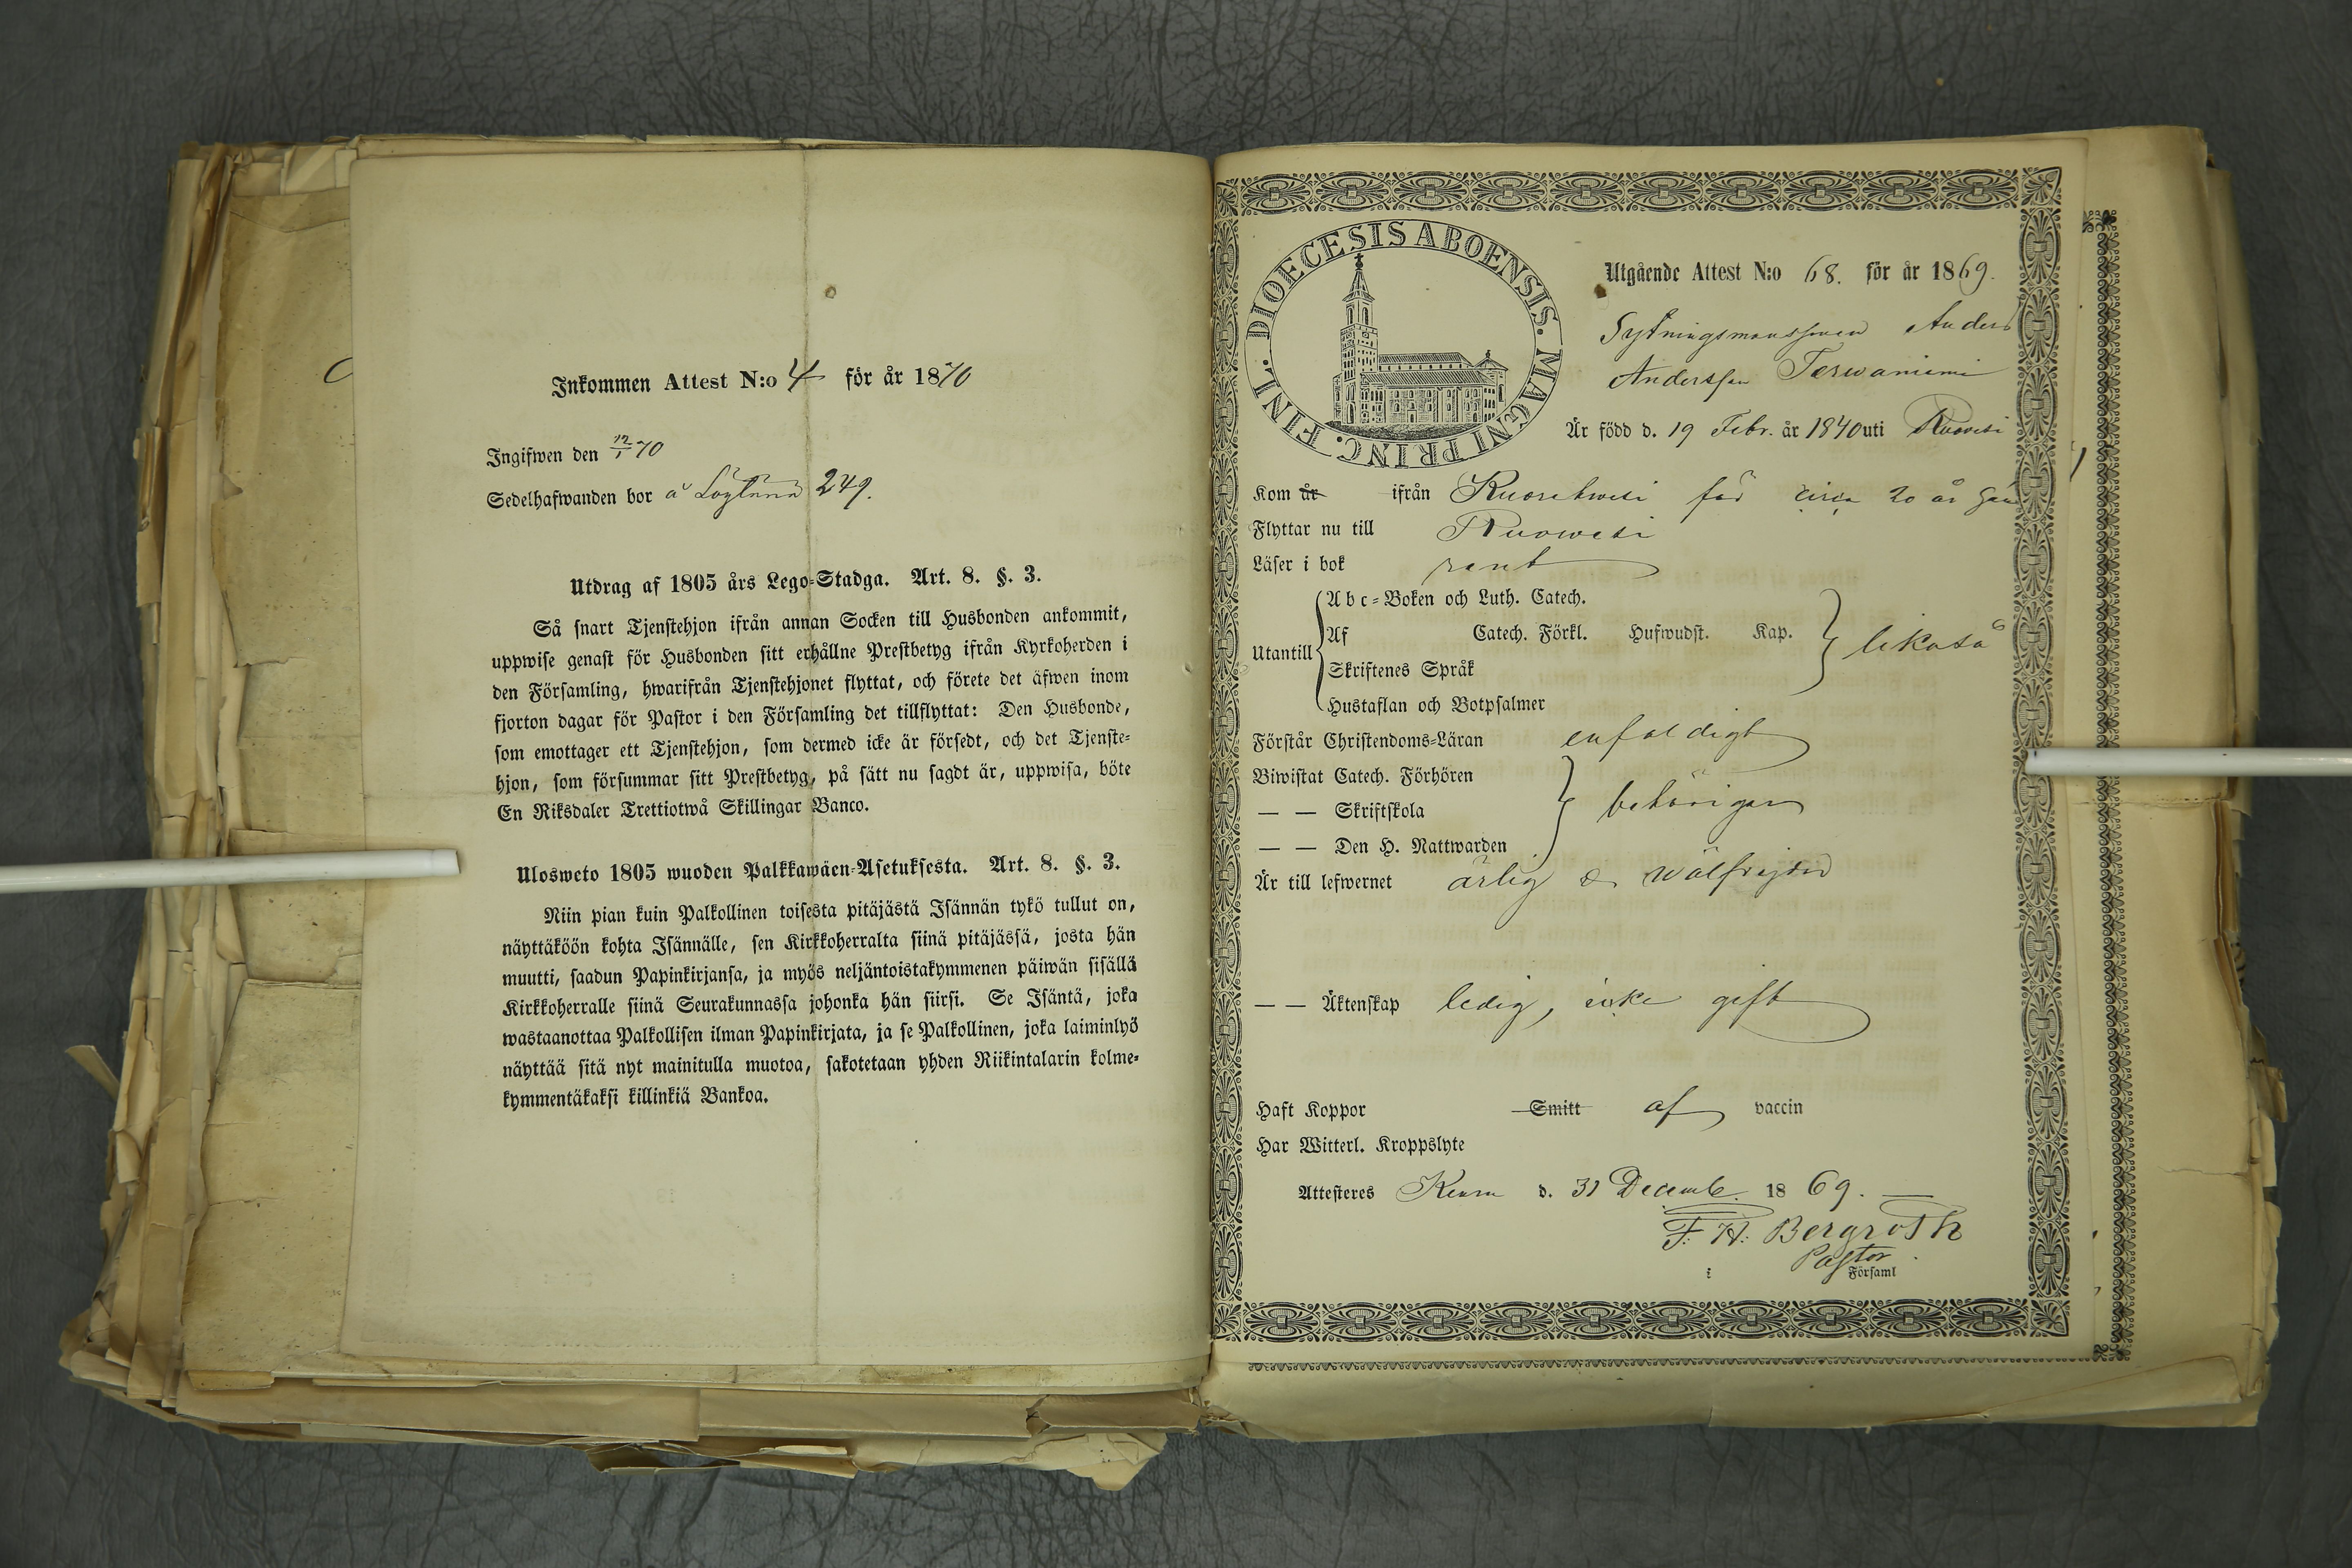 Inkommen Attest N:o 4 för år 1870
Ingifwen den 12/1 70
Sedelhafwanden bor å Löytänä 249.
Utdrag af 1805 års Lego-Stadga. Art. 8. §. 3.
Så snart Tjenstehjon ifrån annan Socken till Husbonden ankommit,
uppwise genast för Husbonden sitt erhållne Prestbetyg ifrån Kyrkoherden i
den Församling, hwarifrån Tjenstehjonet flyttat, och förete det äfwen inom
fjorton dagar för Pastor i den Församling det tillflyttat: Den Husbonde,
som emottager ett Tjenstehjon, som dermed icke är försedt, och det Tjenste-
hjon, som försummar sitt Prestbetyg, på sätt nu sagdt är, uppwisa, böte
En Riksdaler Trettiotwå Skillingar Banco.
Ulosweto 1805 wuoden Palkkawäen-Asetuksesta. Art. 8. §. 3.
Niin pian kuin Palkollinen toisesta pitäjästä Isännän tykö tullut on,
näyttäköön kohta Isännälle, sen Kirkkoherralta siinä pitäjässä, josta hän
muutti, saadun Papinkirjansa, ja myös neljäntoistakymmenen päiwän sisällä
Kirkkoherralle siinä Seurakunnassa johonka hän siirsi. Se Isäntä, joka
wastaanottaa Palkollisen ilman Papinkirjata, ja se Palkollinen, joka laiminlyö
näyttää sitä nyt mainitulla muotoa, sakotetaan yhden Riikintalarin kolme-
kymmentäkaksi killinkiä Bankoa.
DIOECESIS ABOENSIS. MAGNI PRINC. FINL.
Utgående Attest N:o 68. för år 1869.
Sytningsmanssonen Anders
Andersson Terwaniemi
Är född d. 19 Febr. år 1840 uti Ruovesi
Kom år ifrån Ruowesi för circa 20 år
Flyttar nu till Ruowesi
Läser i bok rent
Abc-Boken och Luth. Catech.
Utantill Af Catech. Förkl. Hufwudst. Kap. likaså
Skriftenes Språk
Hustaflan och Botpsalmer
Förstår Christendoms-Läran enfaldigt
Biwistat Catech. Förhören
— — Skriftskola behörigen
— — Den H. Nattwarden
Är till lefwernet ärlig & wälfrejdad
— — Äktenskap ledig, icke gift
Haft Koppor Smitt af vaccin
Har Witterl. Kroppslyte
Attesteres Keuru d. 31 Decemb. 1869.
F. H. Bergroth
Pastor
i Församl